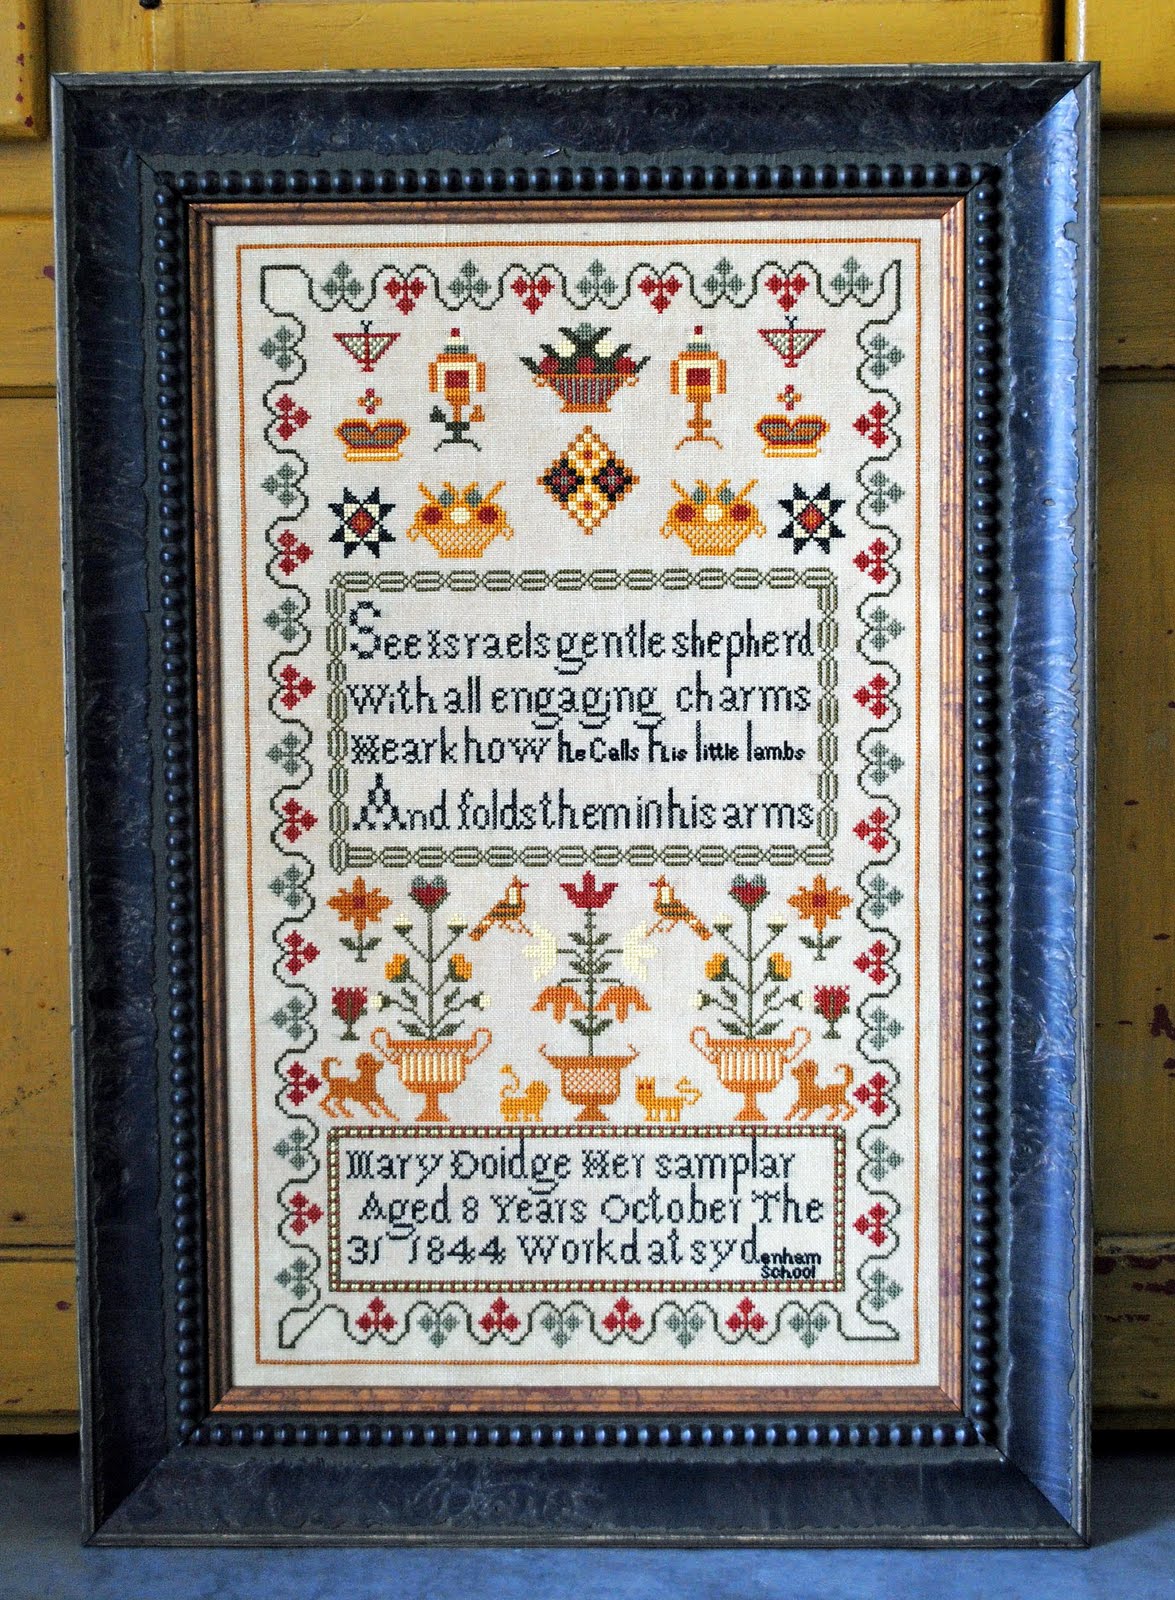 See Israels gentle shepherd
With all engaging charms
Heark how he Calls his little lambs
And folds them in his arms
Mary Doidge Her samplar
Aged 8 Years October The
31 1844 Workd at sydenham
School